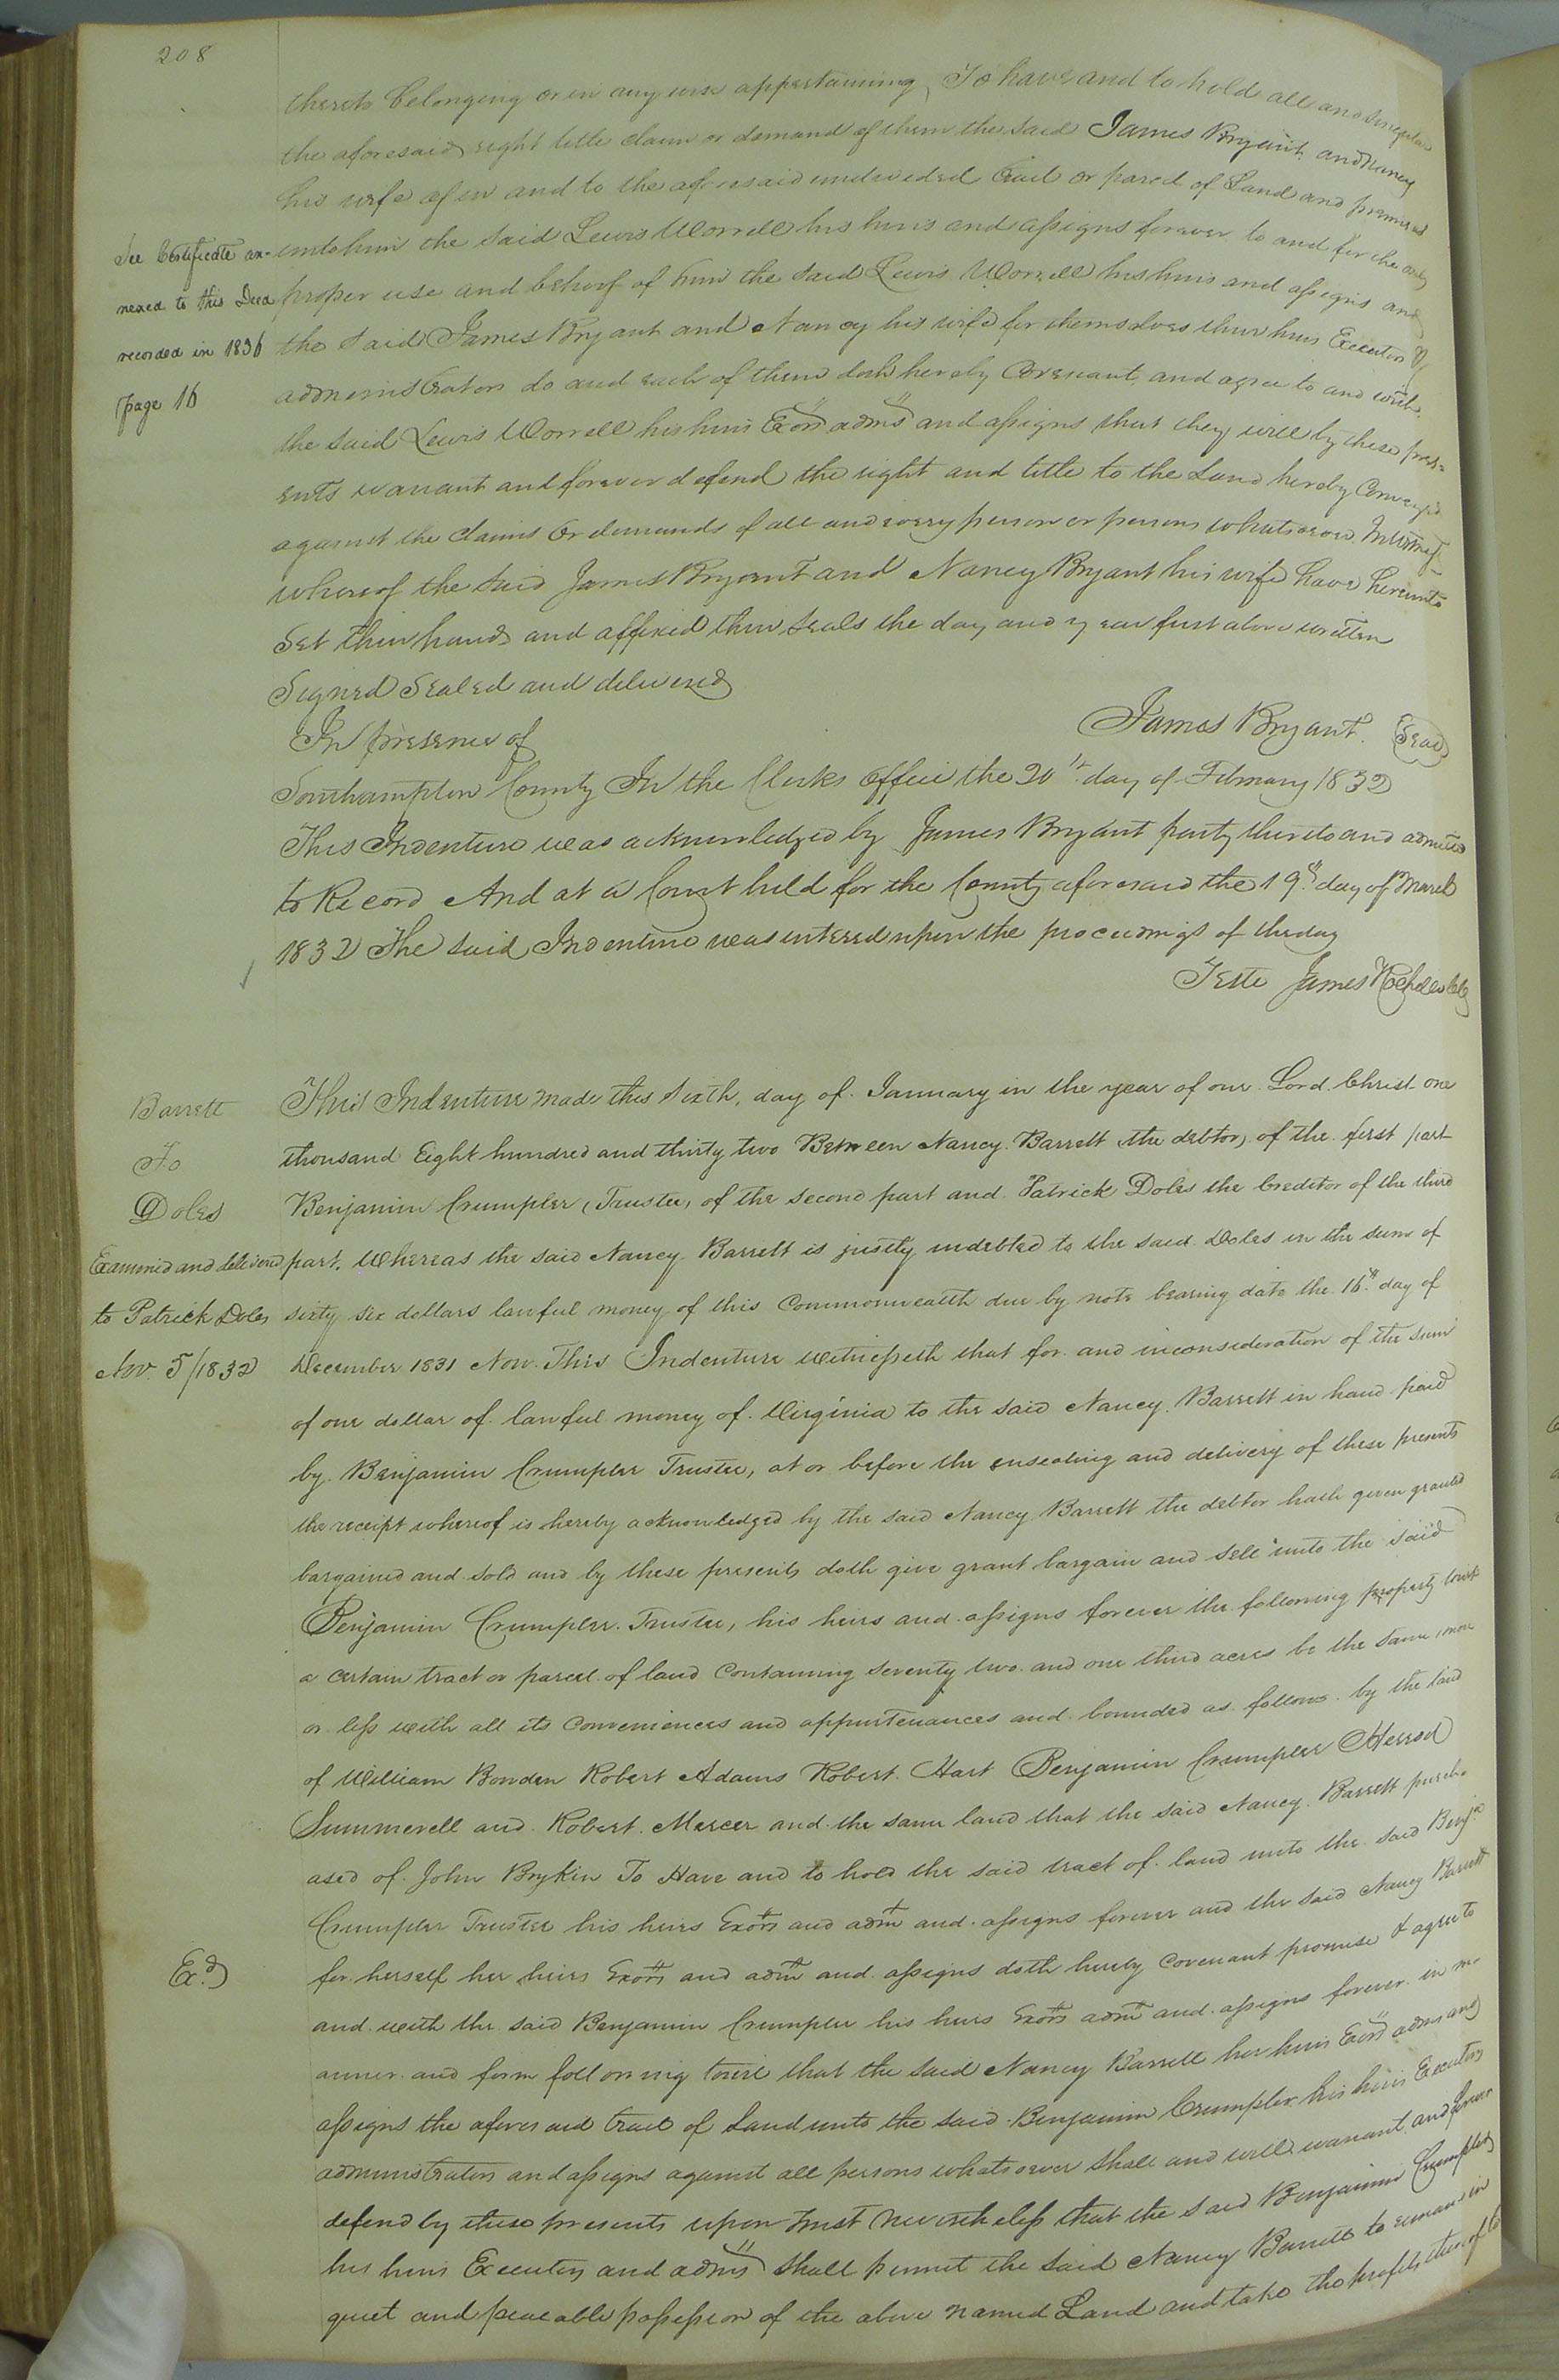 208
thereto belonging or in any wise appertaining To have and to hold all and singular
the aforesaid right title claim or demand of them the said James Bryant and Nancy
his wife of in and to the aforesaid undivided tract or parcel of Land and premises
See Certificate an-
nexed to this Deed
recorded in 1836
page 16
unto him the said Lewis Worrell his heirs and assigns forever to and for the only
proper use and behoof of him the said Lewis Worrell his heirs and assigns and
the said James Bryant and Nancy his wife for themselves their heirs Executors &
administrators do and each of them doth hereby Covenant and agree to and with
the said Lewis Worrell his heirs Exors adms and assigns that they will by these pres-
ents warrant and forever defend the right and title to the Land hereby Conveyed
against the claims or demands of all and every person or persons whatsoever. In witness
whereof the said James Bryant and Nancy Bryant his wife have hereunto
Set their hands and affixed their Seals the day and year first above written
Signed Sealed and delivered
In presence of
James Bryant. Seal
Southampton County In the Clerks Office the 20th day of February 1832
This Indenture was acknowledged by James Bryant party thereto and admitted
to Record And at a Court held for the County aforesaid the 19th day of March
1832 The said Indenture was entered upon the proceedings of the day
Teste James Rochelle Clk
Barrett
To
Doles
Examined and delivered
to Patrick Doles
Nov. 5/1832
This Indenture made this Sixth, day of January in the year of our Lord Christ one
thousand Eight hundred and thirty two Between Nancy Barrett the debtor, of the first part
Benjamin Crumpler (Trustee, of the second part and Patrick Doles the Creditor of the third
part. Whereas the said Nancy Barrett is justly indebted to the said Doles in the sum of
sixty six dollars lawful money of this Commonwealth due by note bearing date the 16th day of
December 1831 Now This Indenture witnesseth that for and inconsideration of the sum
of one dollar of lawful money of Virginia to the said Nancy Barrett in hand paid
by Benjamin Crumpler Trustee, at or before the ensealing and delivery of these presents
the receipt whereof is hereby acknowledged by the said Nancy Barrett the debtor hath given granted
bargained and sold and by these presents doth give grant bargain and sell unto the said
Benjamin Crumpler Trustee, his heirs and assigns forever the following property towit
a certain tract or parcel of land Containing seventy two and one third acres be the same more
or less with all its Conveniences and appurtenances and bounded as follows by the land
of William Bowden Robert Adams Robert Hart Benjamin Crumpler Herrod
Summerell and Robert Mercer and the same land that the said Nancy Barrett purch-
ased of John Brykin To Have and to hold the said tract of land unto the said Benja
Crumpler Trustee his heirs Exors and adm and assigns forever and the said Nancy Barrett
Exd
for herself her heirs Exors and adm and assigns doth hereby Covenant promise & agree to
and with the said Benjamin Crumpler his heirs Exors adm and assigns forever in m-
anner and form following towit that the said Nancy Barrett her heirs Exors adms and
assigns the aforesaid tract of Land unto the said Benjamin Crumpler his heirs Executors
administrators and assigns against all persons whatsoever Shall and will warrant and forever
defend by these presents upon trust nevertheless that the said Benjamin Crumpler
his heirs Executors and adms Shall permit the said Nancy Barrett to remain in
quiet and peaceable possession of the above named Land and take the profits thereof to